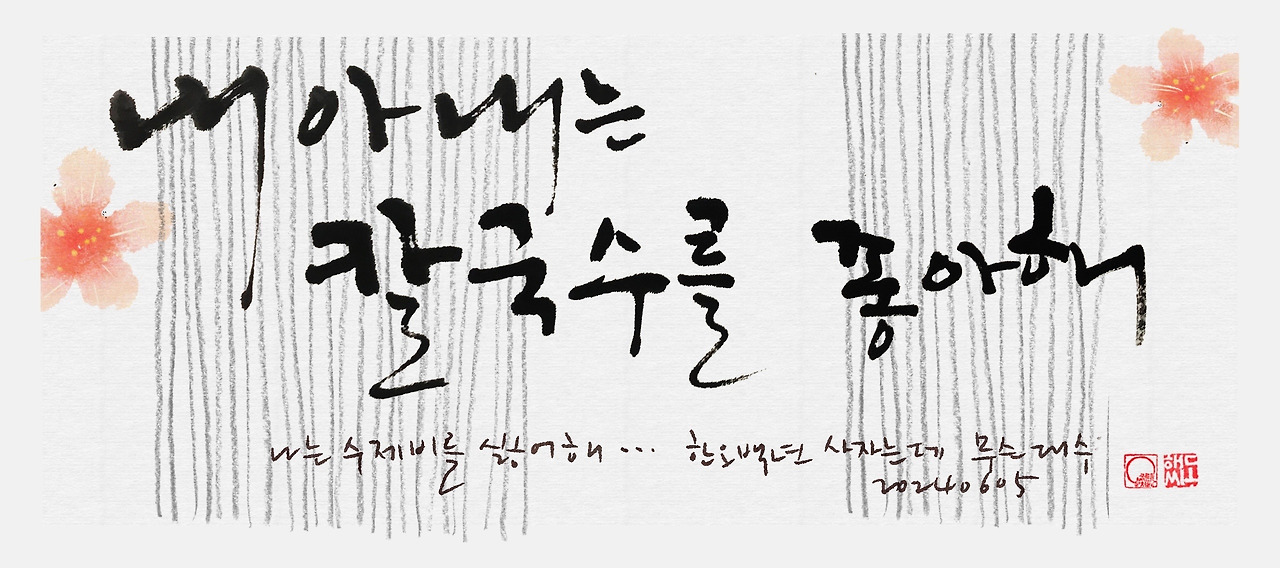 내 아내는
칼국수를 좋아해
나는 수제비를 싫어해 ... 한오백년 사자는데 무슨대수
20240605